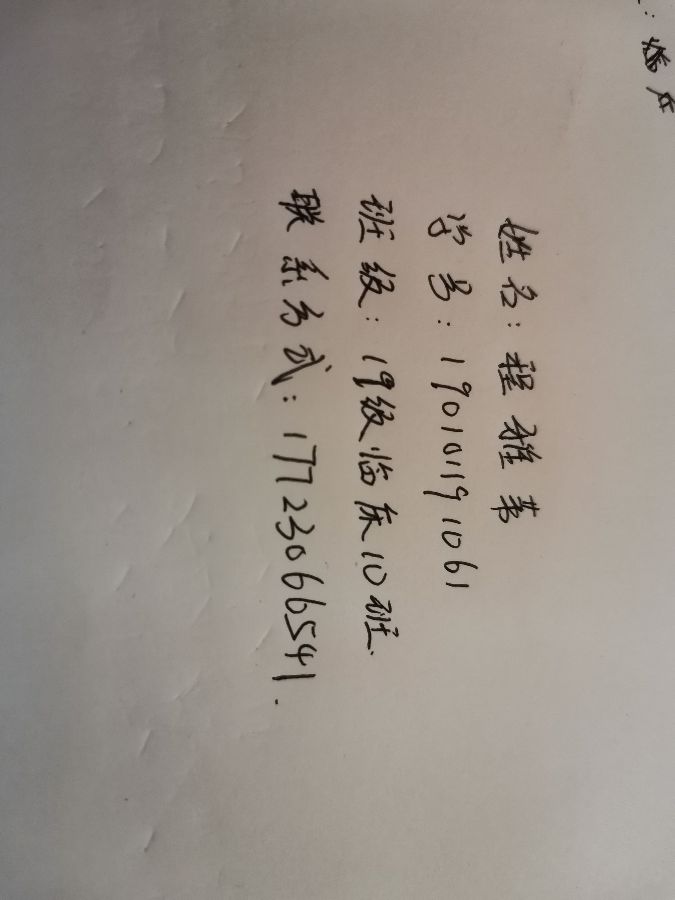 姓名：程雅芾
学号：19010191061
班级：19级临床10班.
联系方式：17723066541.